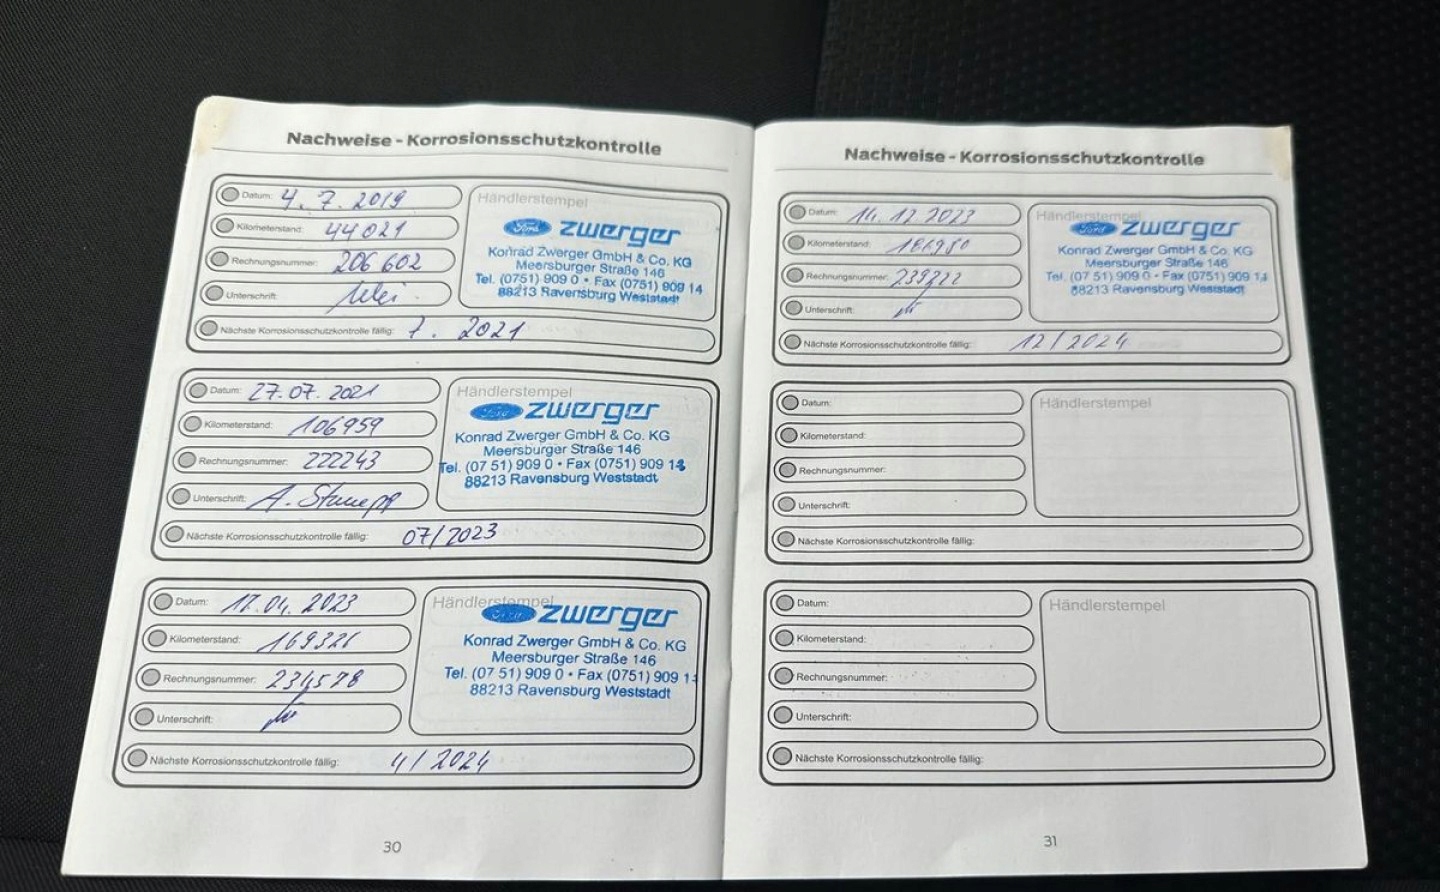 Nachweise - Korrosionsschutzkontrolle
Datum: 4. 7. 2019
Kilometerstand: 44021
Rechnungsnummer: 206 602
Unterschrift:
Nächste Korrosionsschutzkontrolle fällig: 7. 2021
Händlerstempel
Ford zwerger
Konrad Zwerger GmbH & Co. KG
Meersburger Straße 146
Tel. (0751) 909 0 • Fax (0751) 909 14
88213 Ravensburg Weststadt
Datum: 27.07.2021
Kilometerstand: 106959
Rechnungsnummer: 222243
Unterschrift: A.
Nächste Korrosionsschutzkontrolle fällig: 07/2023
Händlerstempel
Ford zwerger
Konrad Zwerger GmbH & Co. KG
Meersburger Straße 146
Tel. (07 51) 909 0 • Fax (0751) 909 14
88213 Ravensburg Weststadt
Datum: 17.04.2023
Kilometerstand: 169326
Rechnungsnummer: 234578
Unterschrift:
Nächste Korrosionsschutzkontrolle fällig: 4/2024
Händlerstempel
Ford zwerger
Konrad Zwerger GmbH & Co. KG
Meersburger Straße 146
Tel. (07 51) 909 0 • Fax (0751) 909 1
88213 Ravensburg Weststadt
30
Nachweise - Korrosionsschutzkontrolle
Datum: 14.12.2023
Kilometerstand: 186950
Rechnungsnummer: 239222
Unterschrift:
Nächste Korrosionsschutzkontrolle fällig: 12/2024
Händlerstempel
Ford zwerger
Konrad Zwerger GmbH & Co. KG
Meersburger Straße 146
Tel. (07 51) 909 0 • Fax (0751) 909 14
88213 Ravensburg Weststadt
Datum:
Kilometerstand:
Rechnungsnummer:
Unterschrift:
Nächste Korrosionsschutzkontrolle fällig:
Händlerstempel
Datum:
Kilometerstand:
Rechnungsnummer:
Unterschrift:
Nächste Korrosionsschutzkontrolle fällig:
Händlerstempel
31